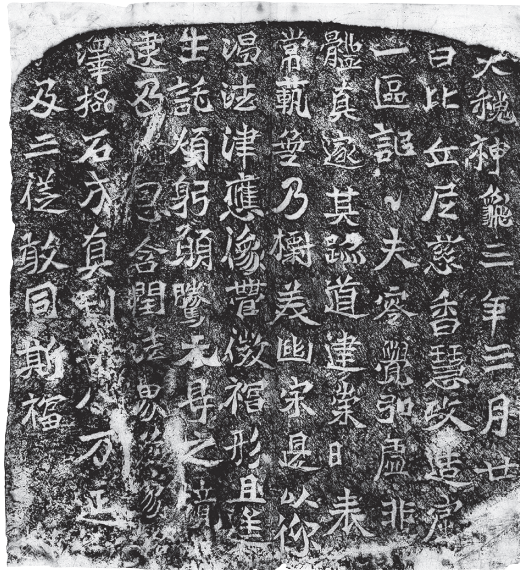 大魏神龜三年三月廿
日比丘尼慈香慧政造窟
一區記〻夫零覺弘虛非
體真邃其跡道建崇日表
常範無乃標美幽宗是以仰
渴法津應像營微福形且遙
生託煩躬願騰无㝵之境
逮及恩含閏法界
澤石成真刊八方延
及三從敢同斯福